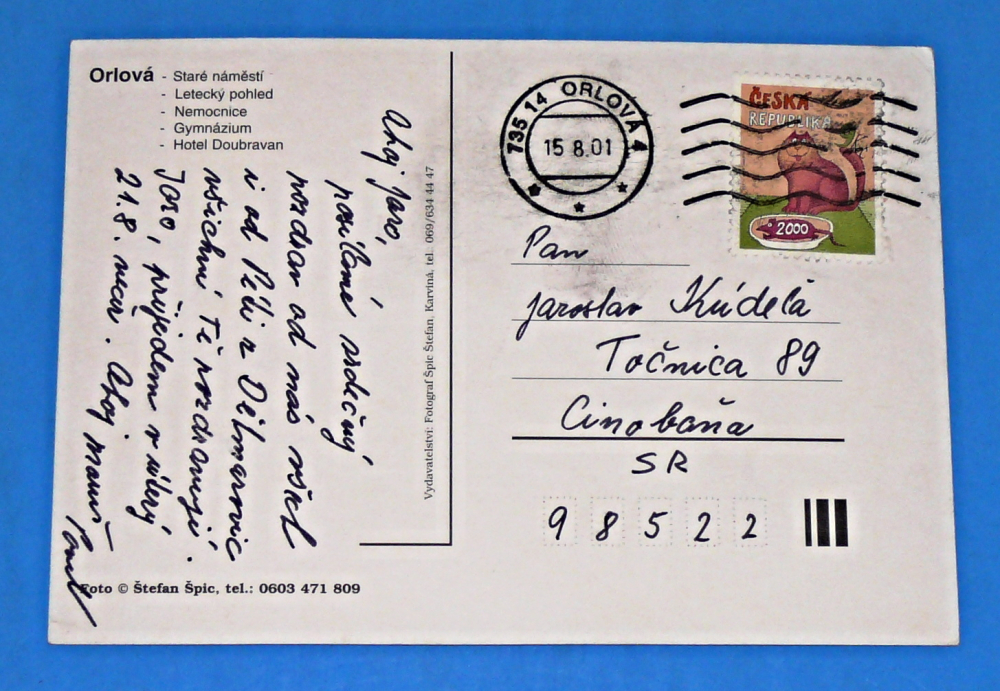 Orlová - Staré náměstí
- Letecký pohled
- Nemocnice
- Gymnázium
- Hotel Doubravan
Ahoj Jaro,
posíláme srdečný
pozdrav od nás všech
i od Péti z Dětmarovic
všichni Tě pozdravují.
Jaro, přijedem v úterý
21.8. večer. Ahoj
Pavel
Foto © Štefan Špic, tel.: 0603 471 809
Vydavatelství: Fotograf Špic Štefan, Karviná, tel. 069/634 44 47
735 14 ORLOVÁ 4
15 8.01
ČESKÁ
REPUBLIKA
2000
Pan
Jaroslav Kúdela
Točnica 89
Cinobaňa
SR
9 8 5 2 2